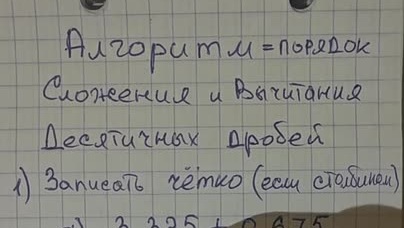 Алгоритм = порядок
Сложения и Вычитания
Десятичных дробей
1) Записать чётко (если столбиком)